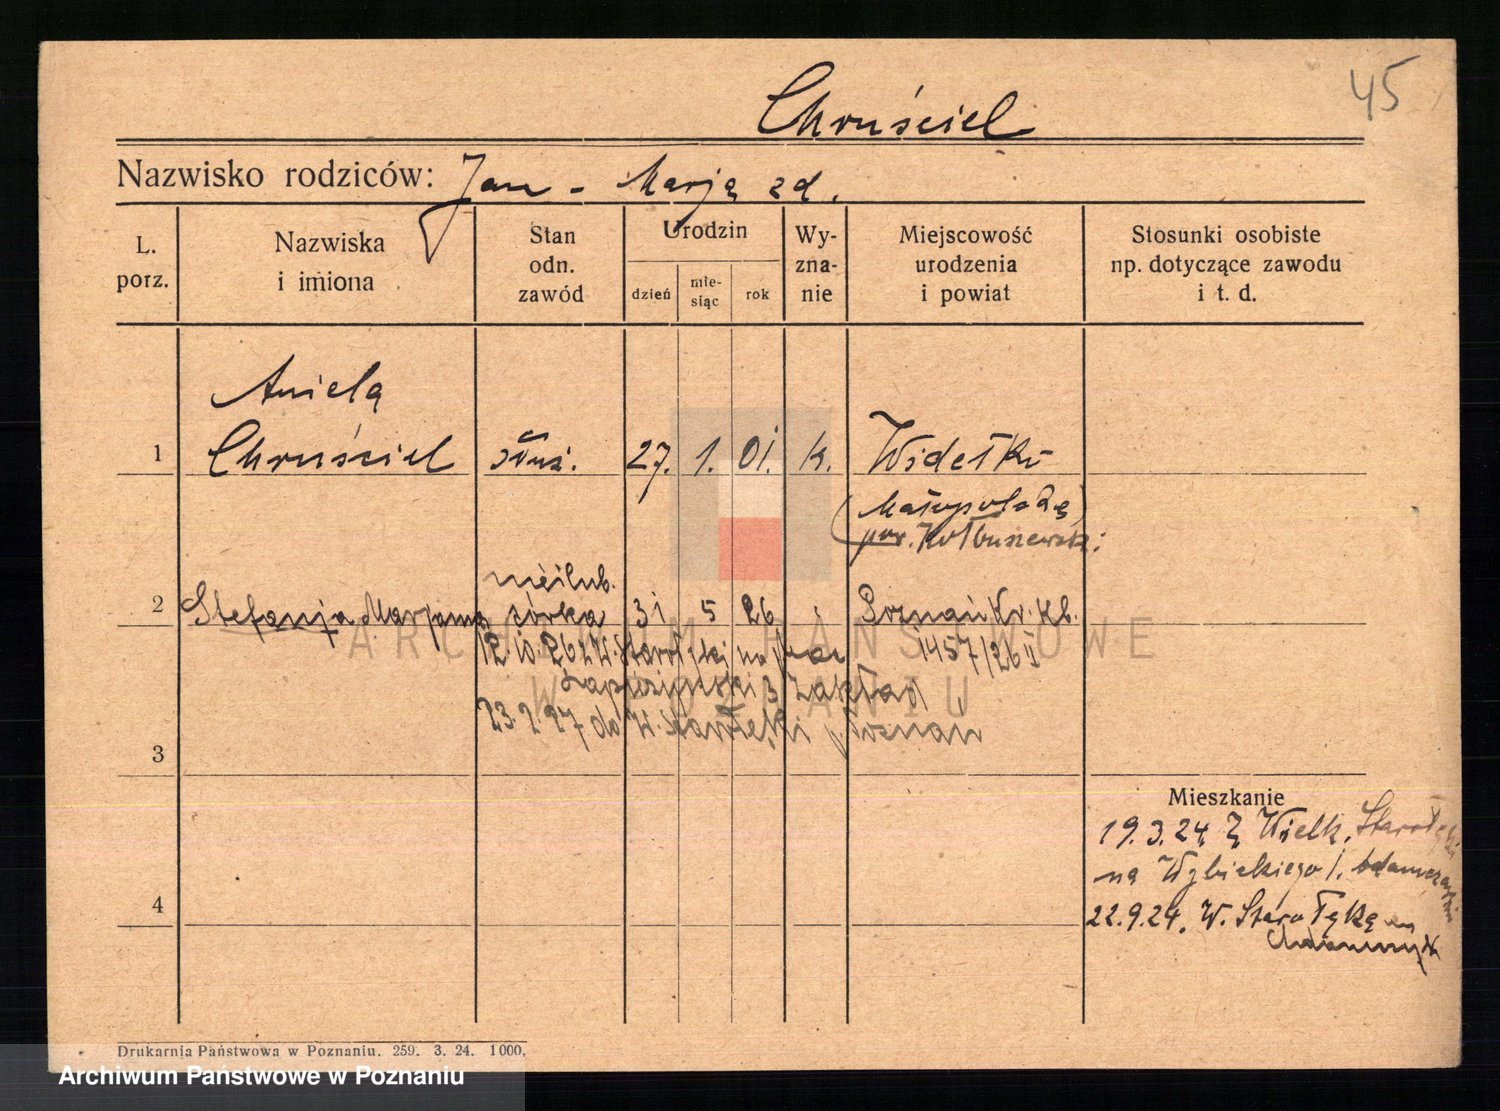 45
Chruściel
Nazwisko rodziców: Jan - Marja zd.
L. porz.
Nazwiska i imiona
Stan odn. zawód
Urodzin
dzień
mie-siąc
rok
Wy-zna-nie
Miejscowość urodzenia i powiat
Stosunki osobiste np. dotyczące zawodu i t. d.
Aniela
1 Chruściel służ. 27. 1. 01. k. Widełki
(Małopolska)
pow. Kolbuszewski
nieślub.
2 Stefanja Marjanna córka 31 5 26 Poznań Kr. Kb.
12.10.26 z W. Starołęki na 1457/26 II
Zakład
23.2.27 do W. Starołęki Poznań
3
Mieszkanie
19.3.24. Z Wielk. Starołęki
na Wybickiego 1.
22.9.24. W. Starołęka
4
ARCHIWUM PAŃSTWOWE
W POZNANIU
Drukarnia Państwowa w Poznaniu. 259. 3. 24. 1000.
Archiwum Państwowe w Poznaniu